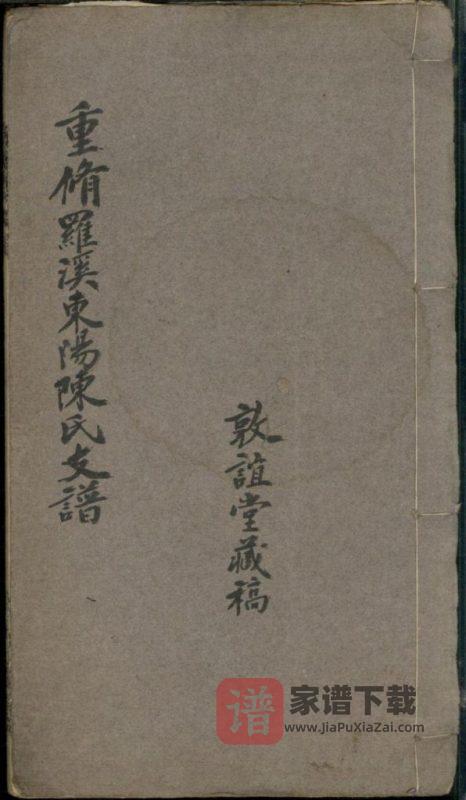 重脩羅溪東陽陳氏支譜
敦誼堂藏稿
谱
家谱下载
www.JiaPuXiaZai.com